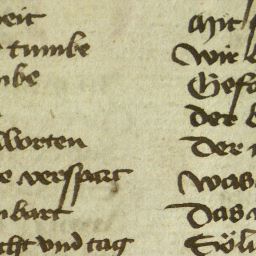 eit
tumbe
mbe
worten
e verspart
nbart
cht vnd tag
Mit
Wir
Gefa
der
Der
Was
Das
Söl